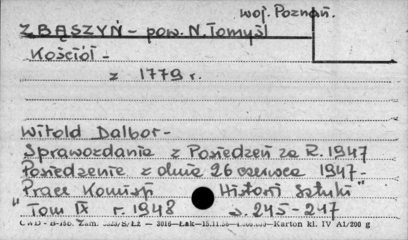 woj. Poznań.
ZBĄSZYŃ - pow. N. Tomyśl
Kościół -
z 1779 r.
Witold Dalbor -
Sprawozdania z Posiedzeń za R. 1947
Posiedzenie z dnia 26 czerwca 1947 -
Prace Komisji Historii Sztuki"
"Tom IX r. 1948 s. 245-247
Karton kl. IV A1/200 g